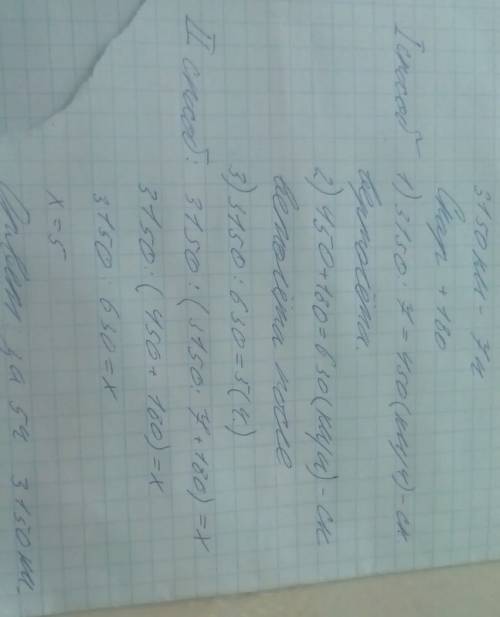 3150 км - 7 ч
+ 180
I способ 1) 3150 : 7 = 450 (км/ч) - ск.
вертолёта.
2) 450 + 180 = 630 (км/ч) - ск.
вертолёта после
3) 3150 : 630 = 5 (ч)
II способ: 3150 : (3150 : 7 + 180) = x
3150 : (450 + 180) = x
3150 : 630 = x
x = 5
Ответ: за 5 ч 3150 км.